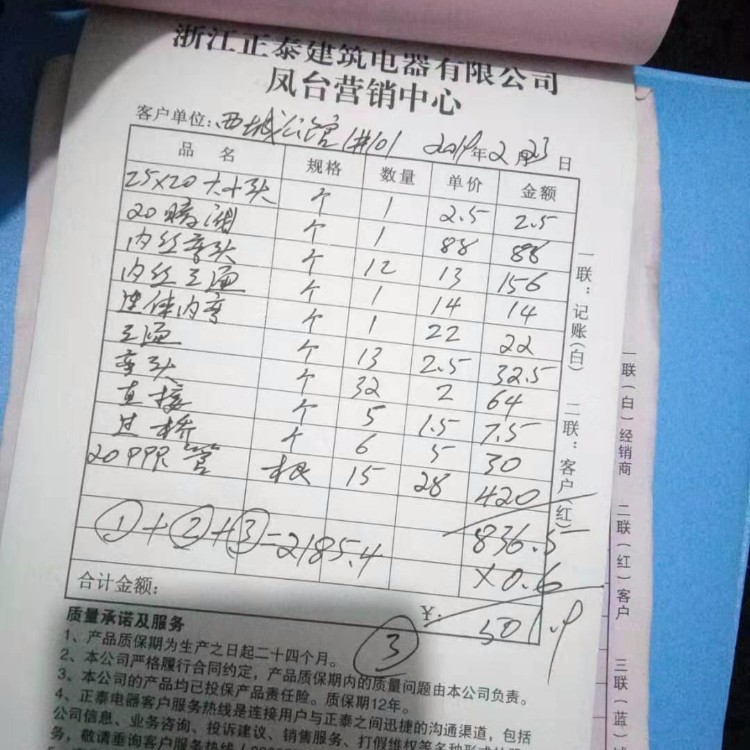 浙江正泰建筑电器有限公司
凤台营销中心
客户单位:西城公馆1#101 2019年2月23日
品名 规格 数量 单价 金额
25×20大小头 个 1 2.5 2.5
20 个 1 88 88
内丝弯头 个 12 13 156
内丝三通 个 1 14 14
连体内弯 个 1 22 22
三通 个 13 2.5 32.5
弯头 个 32 2 64
直接 个 5 1.5 7.5
过桥 个 6 5 30
20PPR管 根 15 28 420
836.5
①+②+③=2185.4
×0.6
合计金额: ¥: 501.9
③
一联:记账(白) 二联:客户(红)
质量承诺及服务
1、产品质保期为生产之日起二十四个月。
2、本公司严格履行合同约定,产品质保期内的质量问题由本公司负责。
3、本公司的产品均已投保产品责任险。质保期12年。
4、正泰电器客户服务热线是连接用户与正泰之间迅捷的沟通渠道,包括
公司信息、业务咨询、投诉建议、销售服务、打假维权等多种形式的
务,敬请垂询客户服务热线
一联(白)经销商 二联(红)客户 三联(蓝)